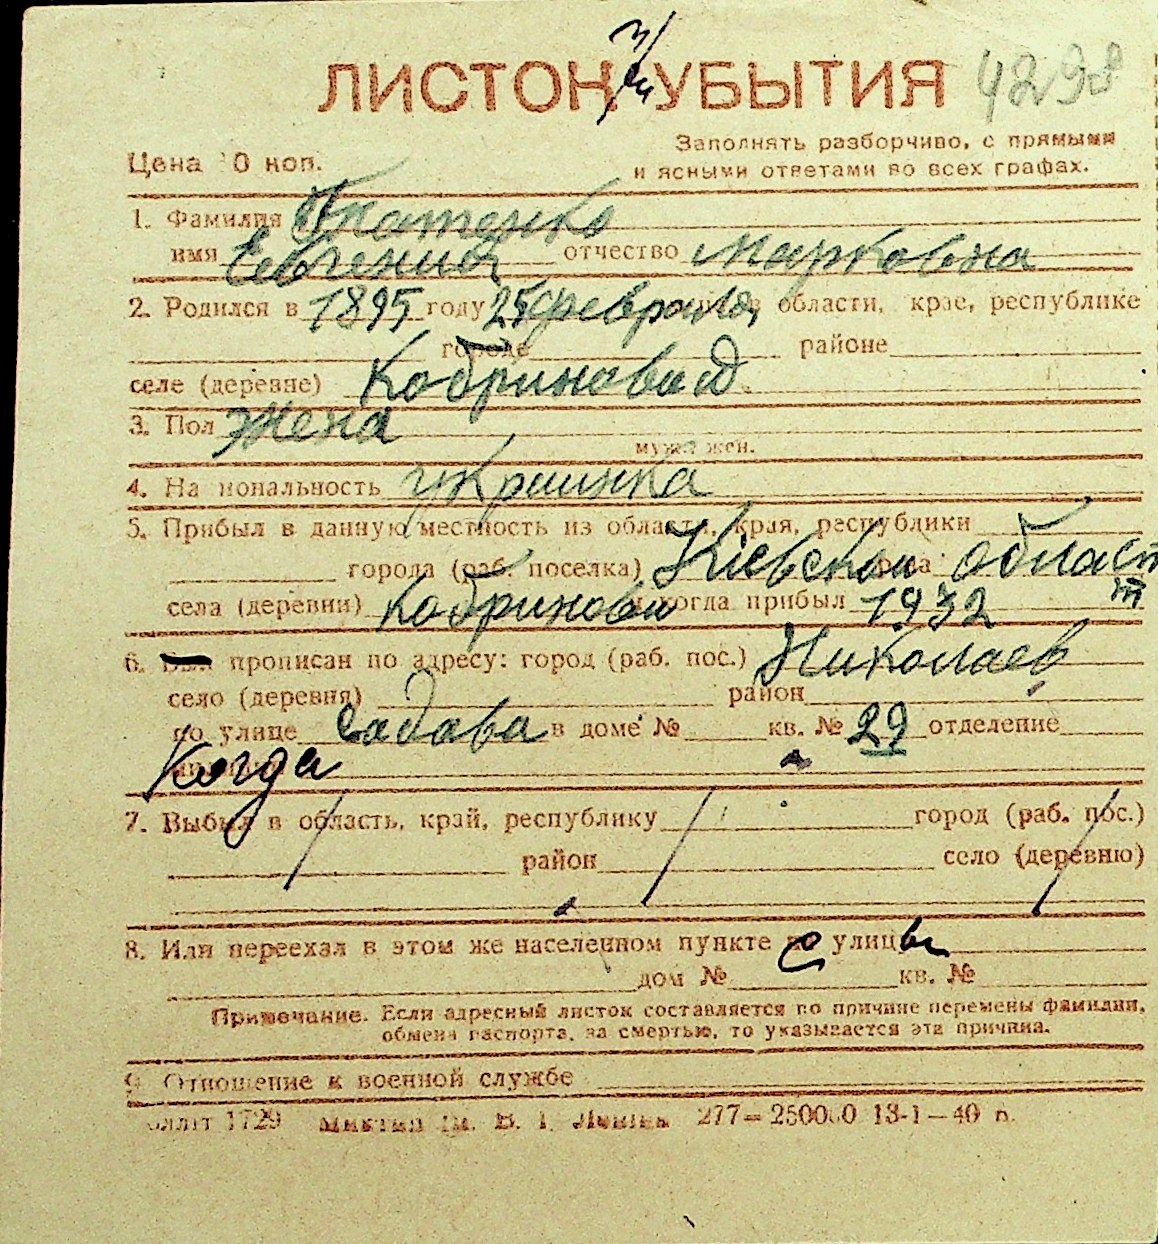 ЛИСТОК УБЫТИЯ 4298
Заполнять разборчиво, с прямыми
Цена 0 коп. и ясными ответами во всех графах.
1. Фамилия
имя Евгения отчество Марковна
2. Родился в 1895 году 25 февраля в области, крае, республике
городе районе
селе (деревне) Кобриновад
3. Пол жена
муж. жен.
4. Национальность украинка
5. Прибыл в данную местность из области, края, республики
города (раб. поселка) Кіевской област
села (деревни) Кобринови и когда прибыл 1932
6. прописан по адресу: город (раб. пос.) Николаев
село (деревня) район
по улице Садова в доме № кв. № 29 отделение
Когда
7. Выбыл в область, край, республику город (раб. пос.)
район село (деревню)
8. Или переехал в этом же населенном пункте с улицы
дом № кв. №
Примечание. Если адресный листок составляется по причине перемены фамилии,
обмена паспорта, за смертью, то указывается эта причина.
9. Отношение к военной службе
1729 В. І. Леніна 277—250000 13-1—40 п.